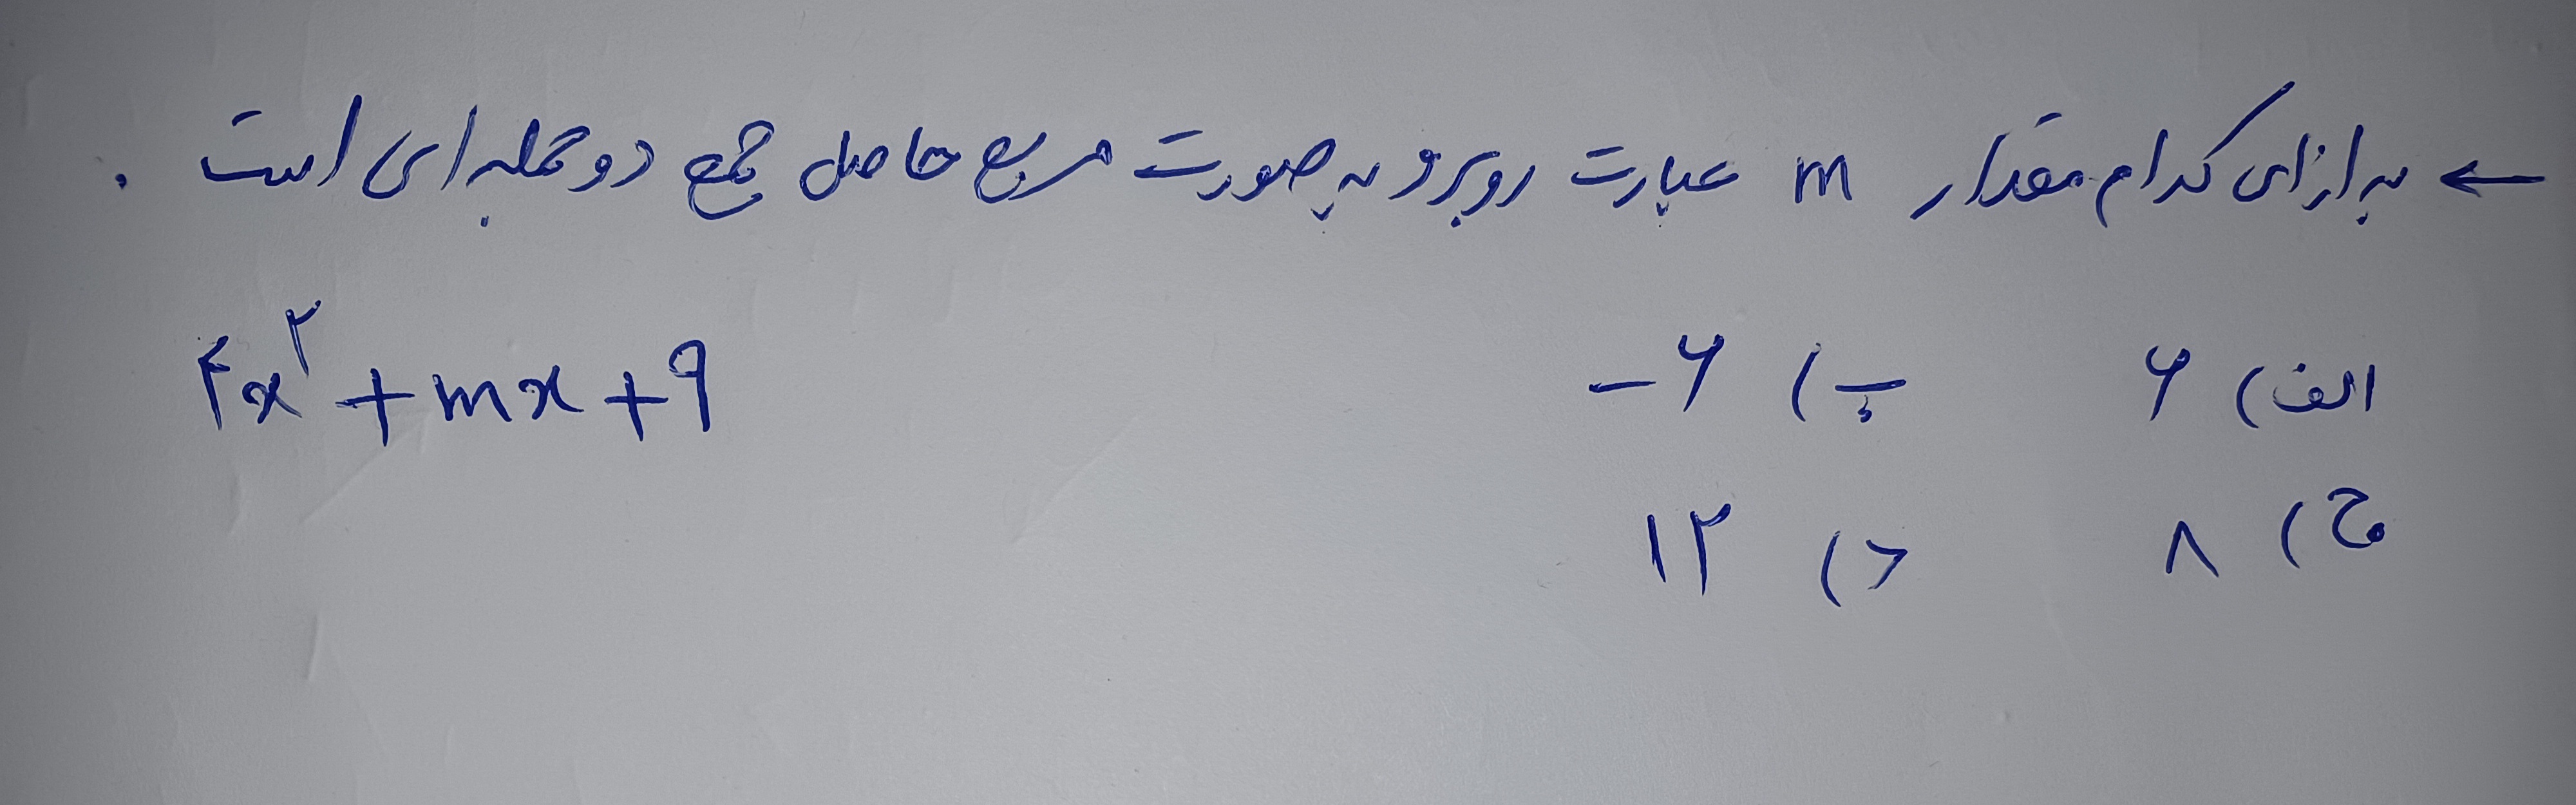 ← به ازای کدام مقدار m عبارت روبرو به صورت مربع حاصل جمع دو جمله ای است .
الف) ۶ ب) -۶ ۴x^۲ + mx + ۹
ج) ۸ د) ۱۲